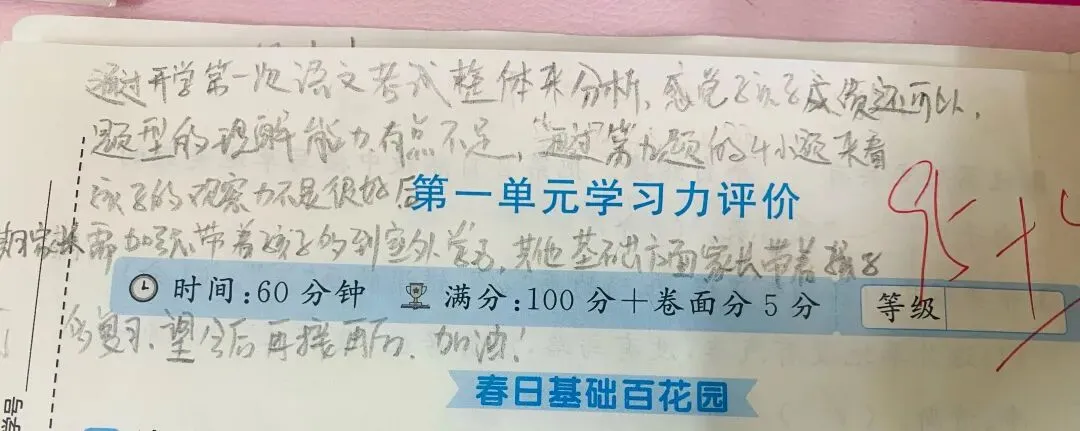 通过开学第一次语文考试整体来分析,感觉孩子成绩还可以,
题型的理解能力有点不足,通过第九题的4小题来看
孩子的观察力不是很好后
第一单元学习力评价
95+5
期家长需加强带着孩子多到室外学习,其他基础方面家长带着孩子
时间:60分钟 满分:100分+卷面分5分 等级
多复习,望今后再接再厉,加油!
春日基础百花园
学号